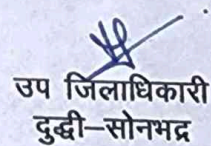 उप जिलाधिकारी
दुद्धी–सोनभद्र